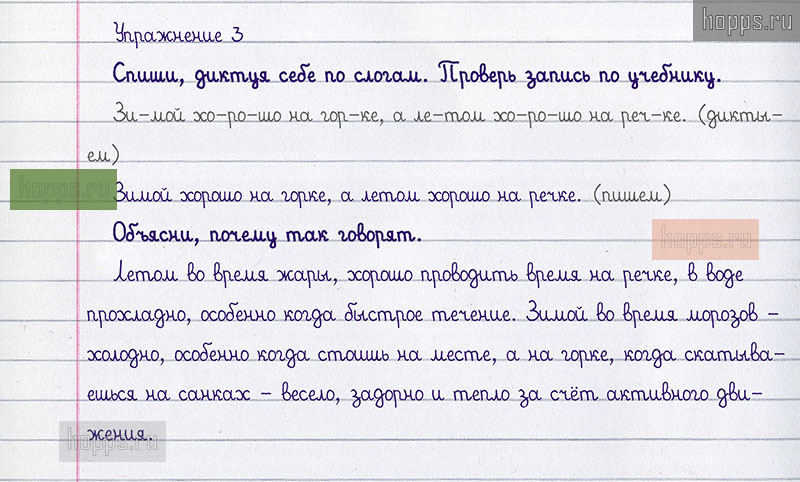 hopps.ru
Упражнение 3
Спиши, диктуя себе по слогам. Проверь запись по учебнику.
Зи-мой хо-ро-шо на гор-ке, а ле-том хо-ро-шо на реч-ке. (дикты-
ем)
hopps.ru
Зимой хорошо на горке, а летом хорошо на речке. (пишем)
Объясни, почему так говорят.
hopps.ru
Летом во время жары, хорошо проводить время на речке, в воде
прохладно, особенно когда быстрое течение. Зимой во время морозов –
холодно, особенно когда стоишь на месте, а на горке, когда скатыва-
ешься на санках – весело, задорно и тепло за счёт активного дви-
жения.
hopps.ru